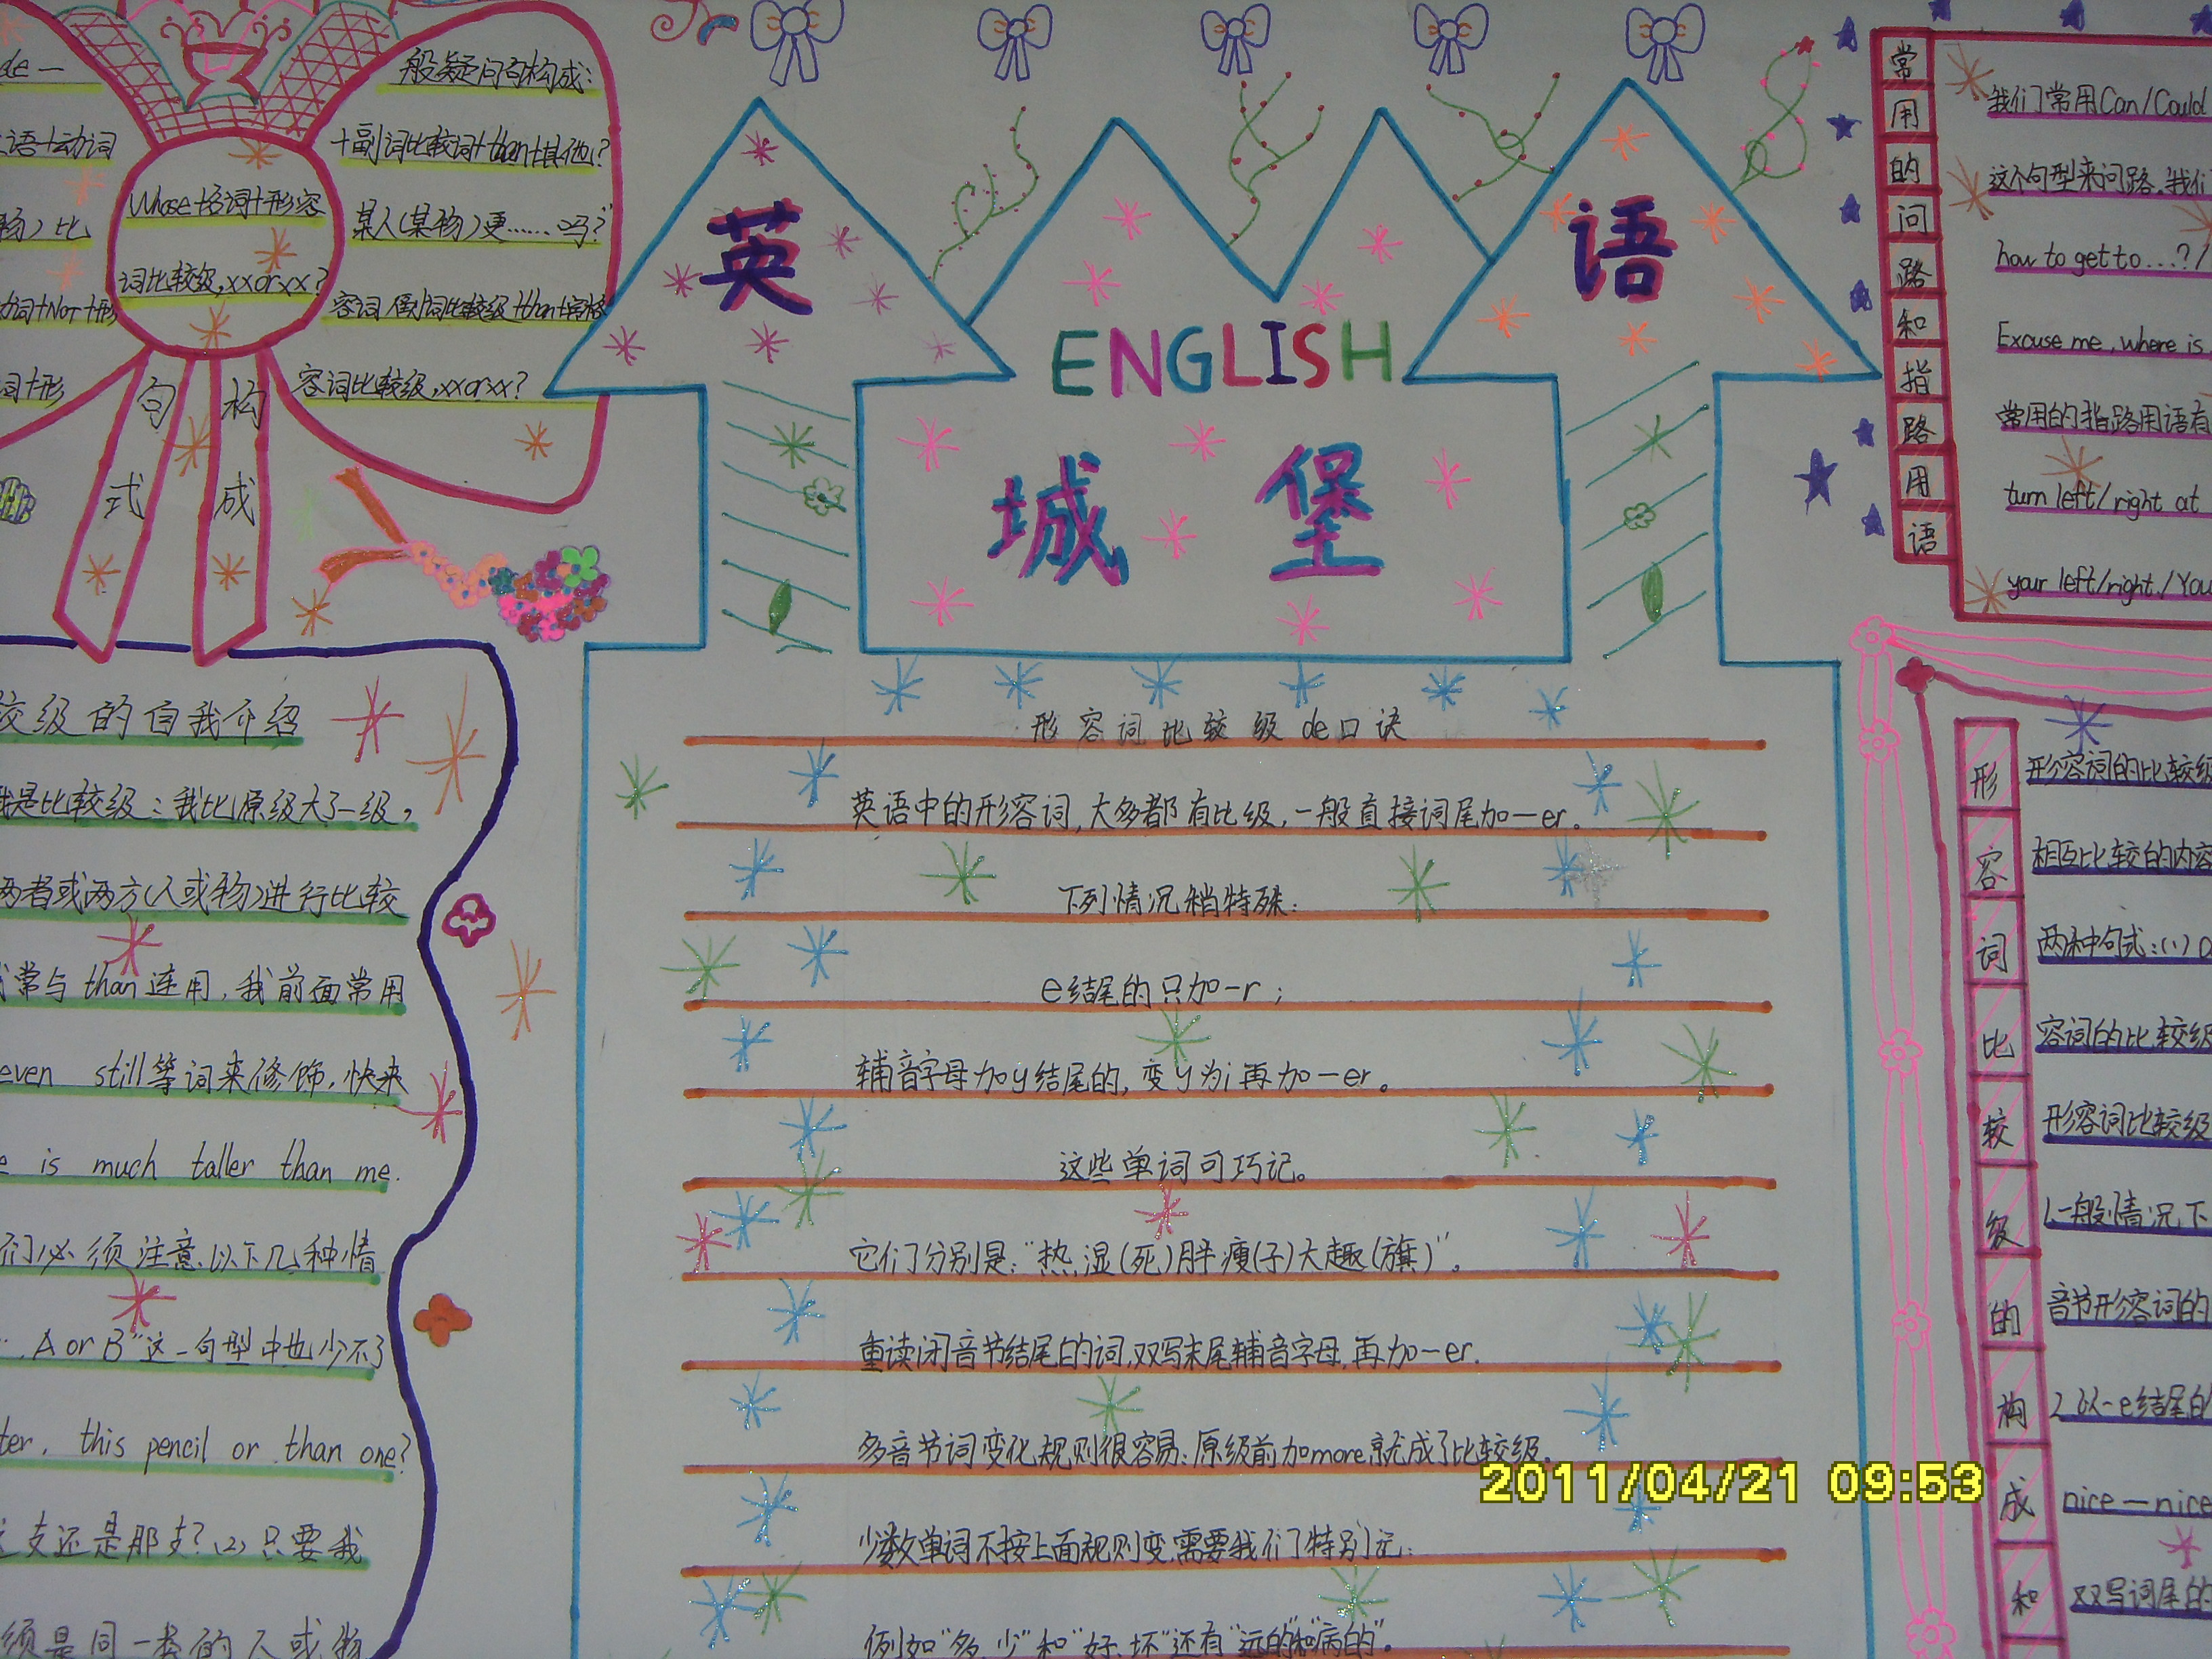 de一
般疑问句构成：
语+动词
+副词比较词+than+其他？
Whose+名词+形容
词比较级，xx or xx？
物）比
某人（某物）更……吗？
动词+Not+形
容词 副词比较级+than+宾格
词+形
容词比较级，xx or xx？
句式
构成
英语
ENGLISH
城堡
常用的问路和指路用语
我们常用Can/Could
这个句型来问路。我们
how to get to…？/
Excuse me，where is
常用的指路用语有
turn left/right at
your left/right./You
较级的自我介绍
我是比较级：我比原级大了一级，
两者或两方（人或物）进行比较
常与than连用，我前面常用
even still等词来修饰，快来
e is much taller than me.
们必须注意以下几种情
A or B"这一句型中也少不了
ter, this pencil or than one?
支还是那支？(2)只要我
须是同一类的人或物
形容词比较级de口诀
英语中的形容词，大多都有比级，一般直接词尾加-er。
下列情况稍特殊：
e结尾的只加-r；
辅音字母加y结尾的，变y为i再加-er。
这些单词可巧记。
它们分别是："热湿（死）胖瘦（子）大趣（旗）"。
重读闭音节结尾的词，双写末尾辅音字母，再加-er.
多音节词变化规则很容易：原级前加more就成了比较级。
少数单词不按上面规则变，需要我们特别记：
例如"多、少"和"好、坏"还有"远的"和"病的"。
形容词比较级的构成和
形容词的比较级
相互比较的内容
两种句式：(1)
容词的比较级
形容词比较级
1.一般情况下
音节形容词的
2以-e结尾的
nice—nice
双写词尾的
2011/04/21 09:53